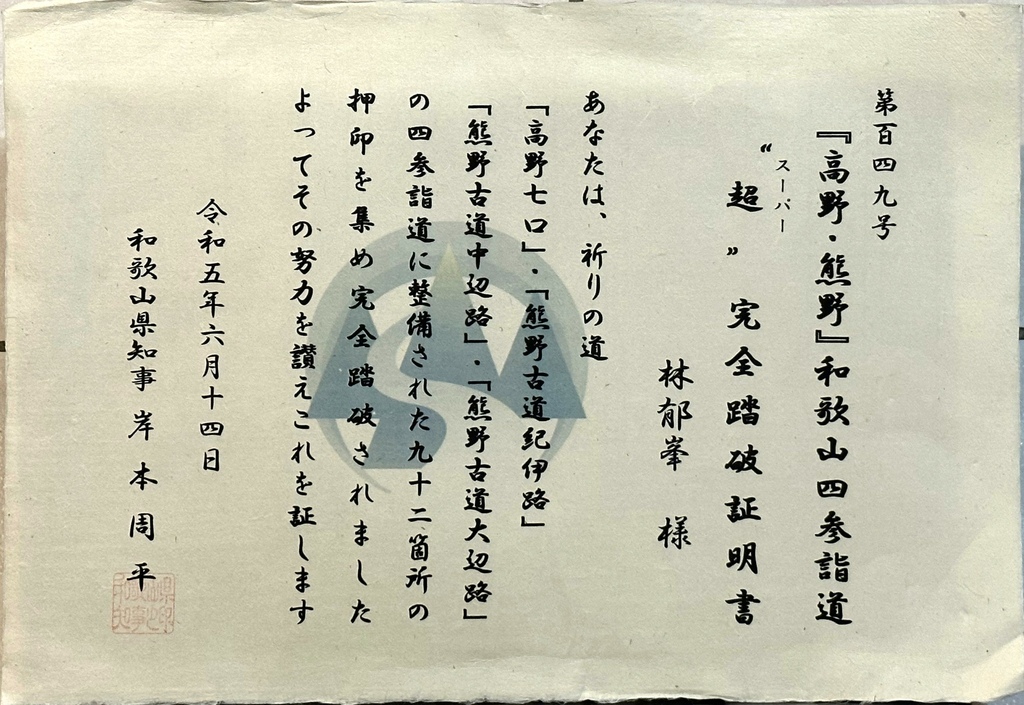 第百四九号
『高野・熊野』和歌山四参詣道
スーパー
“超” 完全踏破証明書
林郁峯 様
あなたは、祈りの道
「高野七口」・「熊野古道紀伊路」
「熊野古道中辺路」・「熊野古道大辺路」
の四参詣道に整備された九十二箇所の
押印を集め完全踏破されました
よってその努力を讃えこれを証します
令和五年六月十四日
和歌山県知事 岸本周平